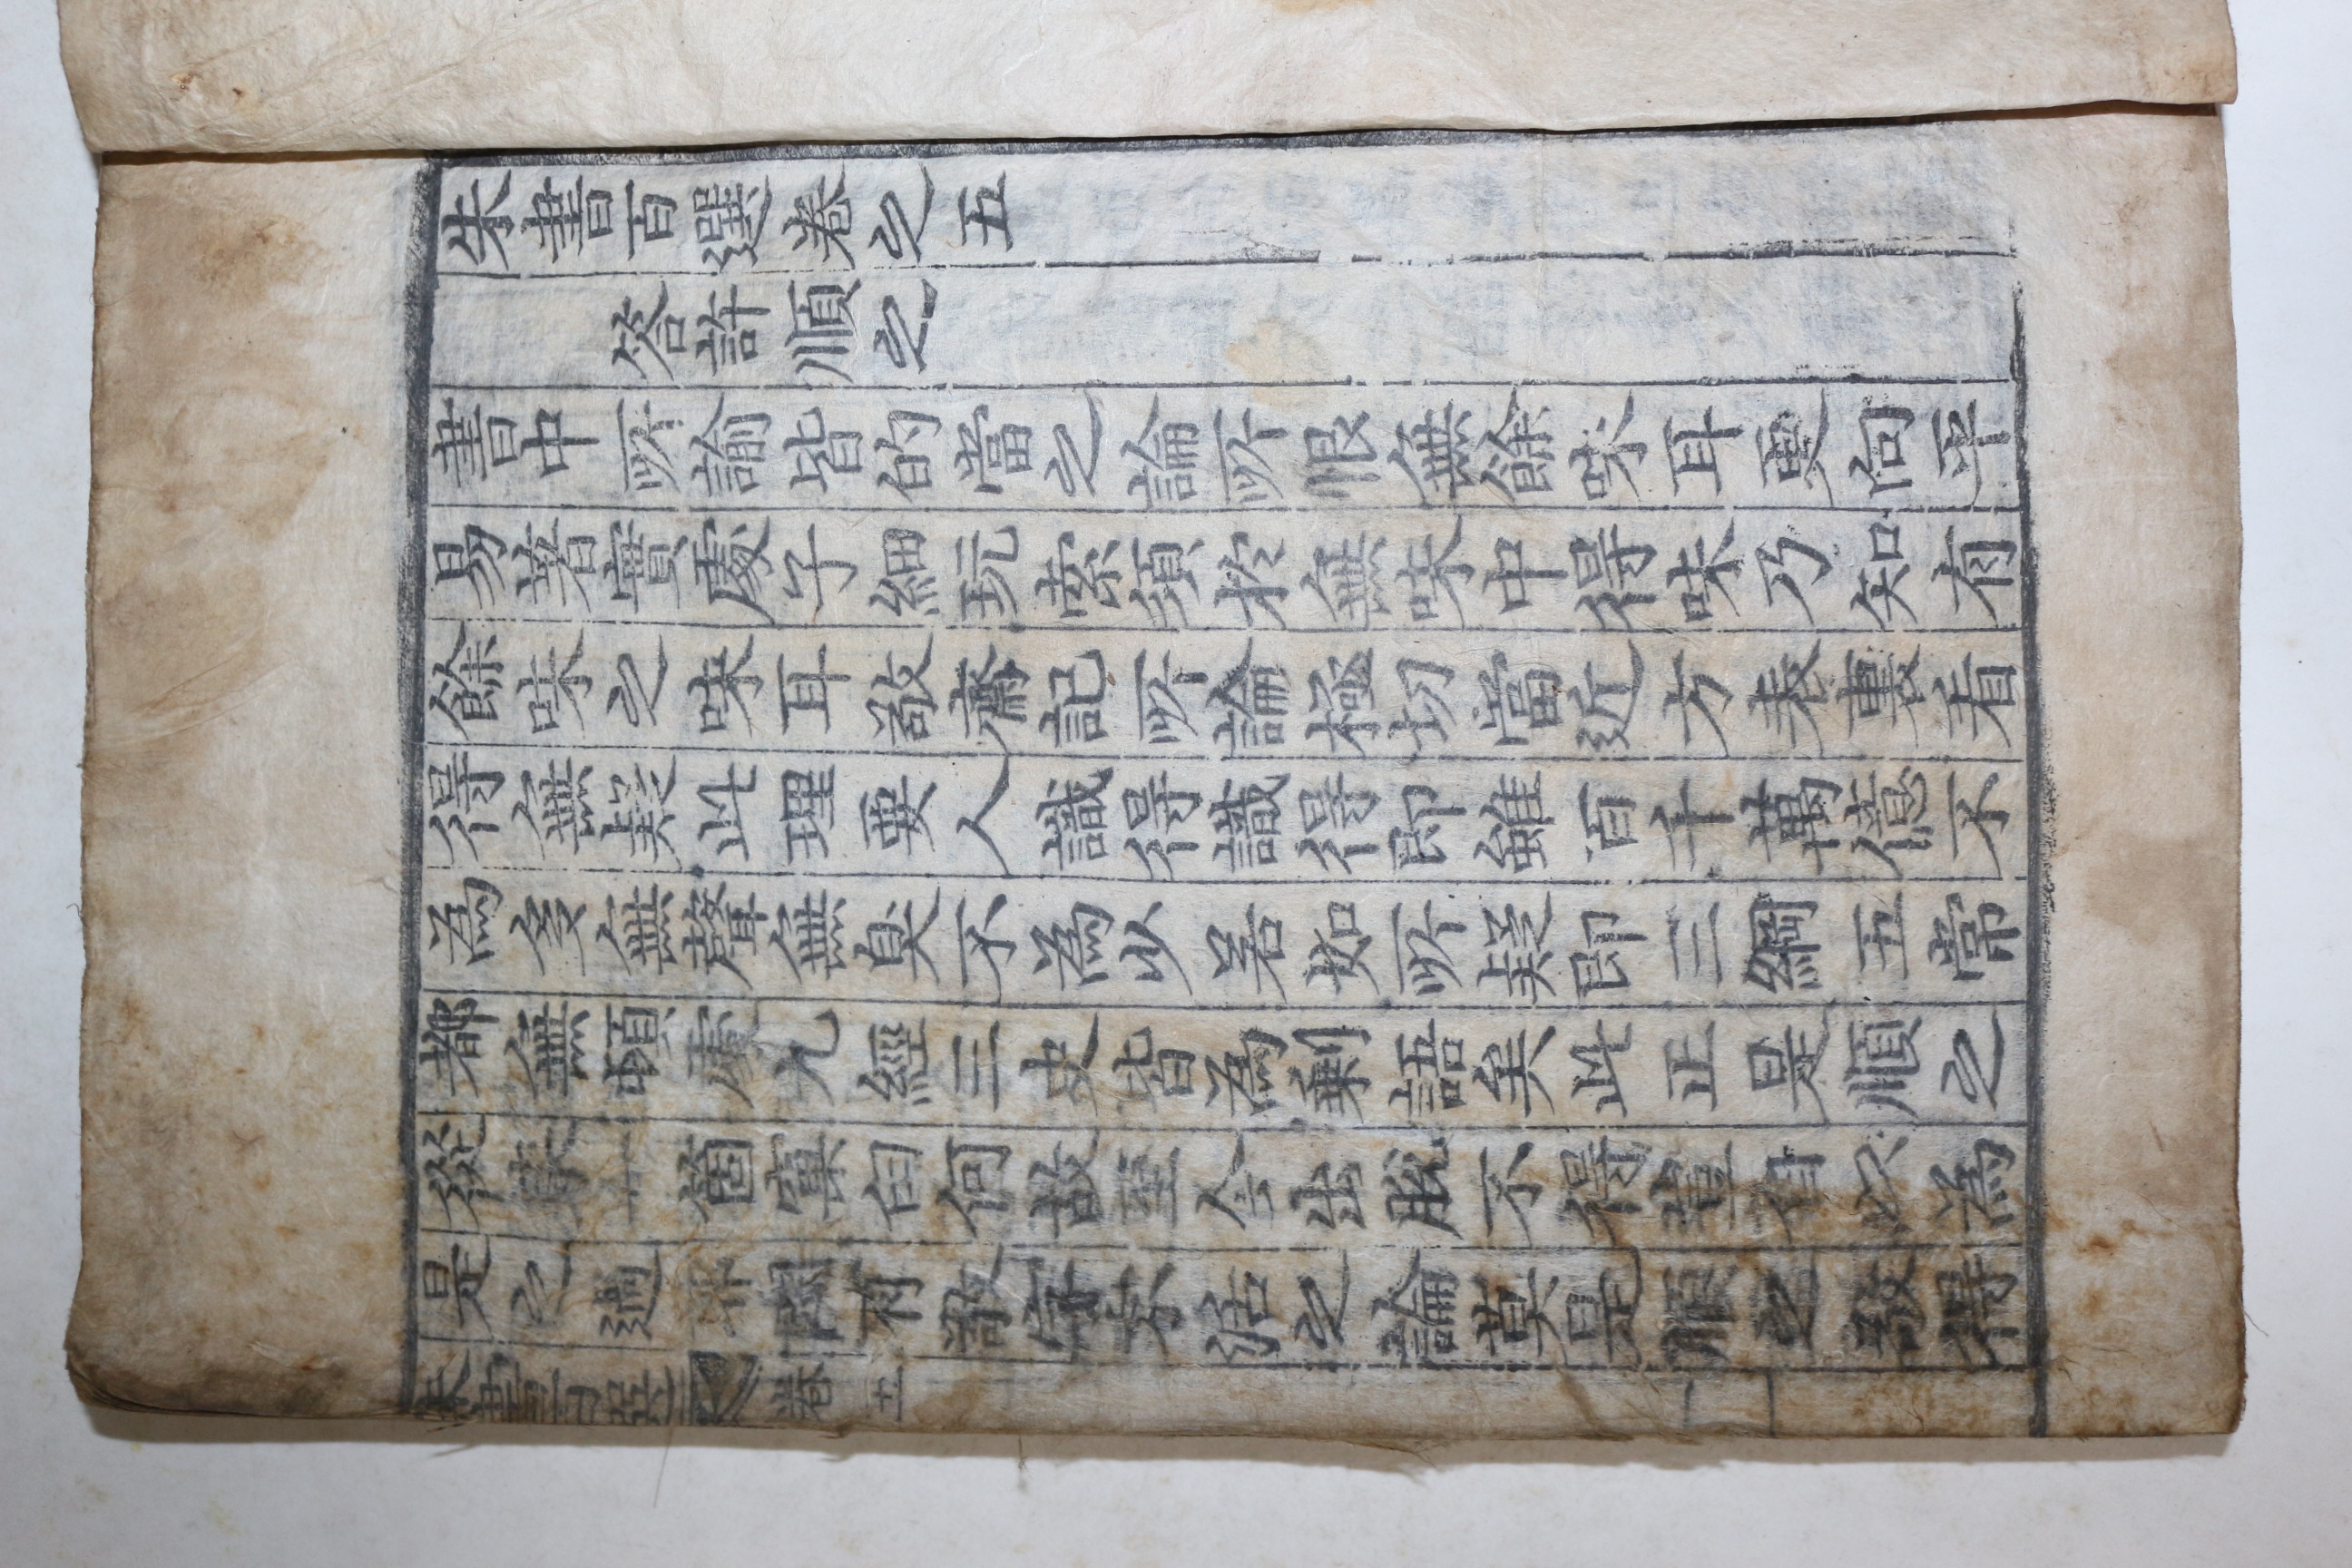 朱書百選卷之五
答許順之
書中所諭皆的當之論所恨無餘味耳更向平
易著實處子細玩索須於無味中得味乃知有
餘味之味耳敬齋記所論極切當近方表裏看
得無疑此理要人識得識得即雖百千萬億不
為多無聲無臭不為少若如所疑即三綱五常
都無頓處九經三史皆為剩語矣此正是順之
從來一箇窠臼何故至今出脫不得豈自以為
是之過耶聞有敬字不活之論莫是順之敬得
朱書百選 卷五 一